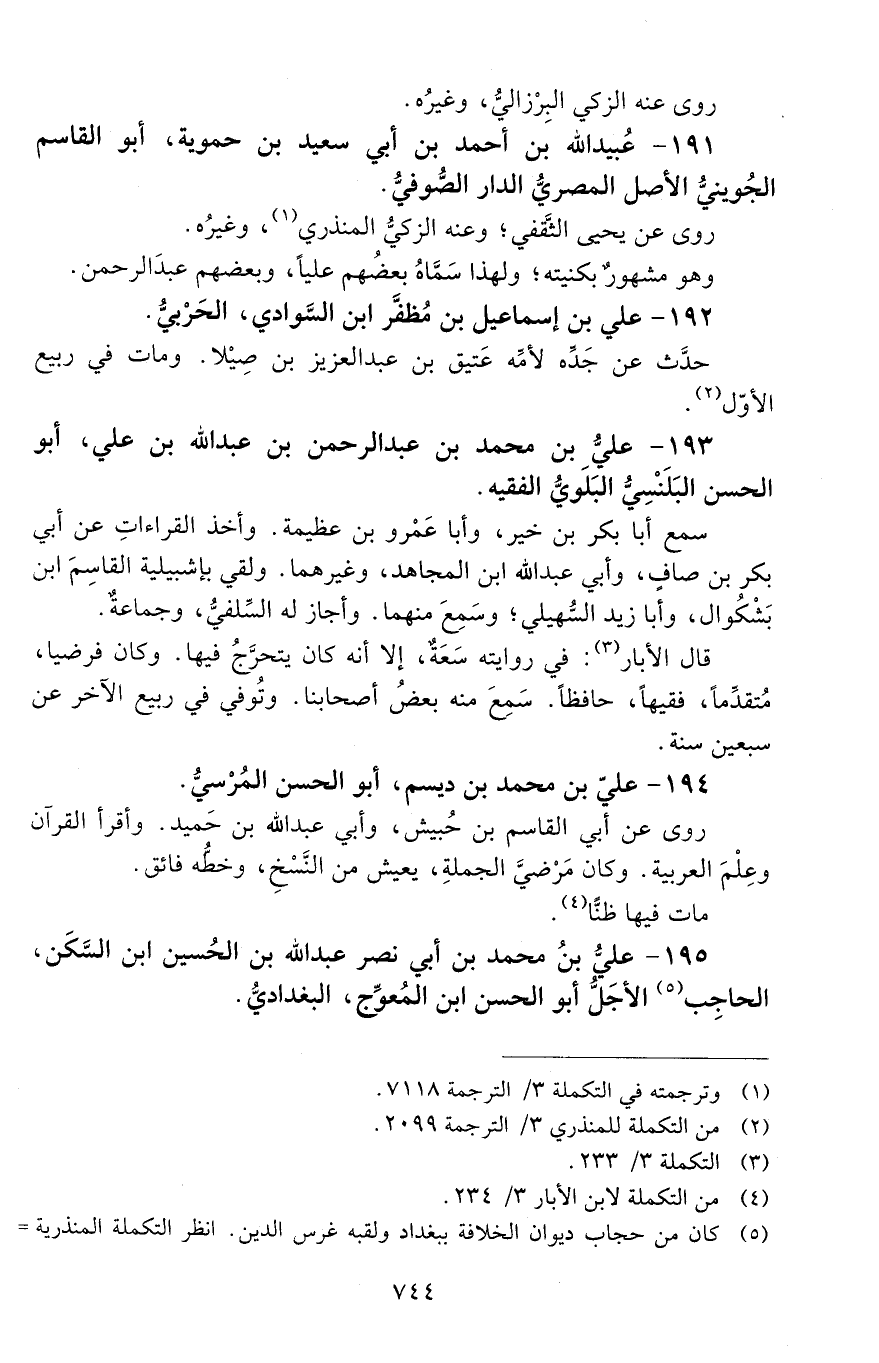 روى عنه الزكي البِرْزاليُّ، وغيرُه.
١٩١- عُبيدالله بن أحمد بن أبي سعيد بن حموية، أبو القاسم
الجُوينيُّ الأصل المصريُّ الدار الصُّوفيُّ.
روى عن يحيى الثَّقفي؛ وعنه الزكيُّ المنذري(١)، وغيرُه.
وهو مشهورٌ بكنيته؛ ولهذا سَمَّاهُ بعضُهم علياً، وبعضهم عبدَالرحمن.
١٩٢- علي بن إسماعيل بن مُظفَّر ابن السَّوادي، الحَرْبيُّ.
حدَّث عن جَدِّه لأمِّه عَتيق بن عبدالعزيز بن صِيْلا. ومات في ربيع
الأوّل(٢).
١٩٣- عليُّ بن محمد بن عبدالرحمن بن عبدالله بن علي، أبو
الحسن البَلَنْسِيُّ البَلَويُّ الفقيه.
سمع أبا بكر بن خير، وأبا عَمْرو بن عظيمة. وأخذ القراءاتِ عن أبي
بكر بن صافٍ، وأبي عبدالله ابن المجاهد، وغيرهما. ولقي بإشبيلية القاسِمَ ابن
بَشْكُوال، وأبا زيد السُّهيلي؛ وسَمِعَ منهما. وأجاز له السِّلفيُّ، وجماعةٌ.
قال الأبار(٣): في روايته سَعَةٌ، إلا أنه كان يتحرَّجُ فيها. وكان فرضيا،
مُتقدِّماً، فقيهاً، حافظاً. سَمِعَ منه بعضُ أصحابنا. وتُوفي في ربيع الآخر عن
سبعين سنة.
١٩٤- عليّ بن محمد بن ديسم، أبو الحسن المُرْسيُّ.
روى عن أبي القاسم بن حُبيش، وأبي عبدالله بن حَميد. وأقرأ القرآن
وعِلْمَ العربية. وكان مَرْضيَّ الجملةِ، يعيش من النَّسْخِ، وخطُّه فائق.
مات فيها ظنًّا(٤).
١٩٥- عليُّ بنُ محمد بن أبي نصر عبدالله بن الحُسين ابن السَّكَن،
الحاجِب(٥) الأجَلُّ أبو الحسن ابن المُعوِّج، البغداديُّ.
(١) وترجمته في التكملة ٣/ الترجمة ٧١١٨.
(٢) من التكملة للمنذري ٣/ الترجمة ٢٠٩٩.
(٣) التكملة ٣/ ٢٣٣.
(٤) من التكملة لابن الأبار ٣/ ٢٣٤.
(٥) كان من حجاب ديوان الخلافة ببغداد ولقبه غرس الدين. انظر التكملة المنذرية =
٧٤٤